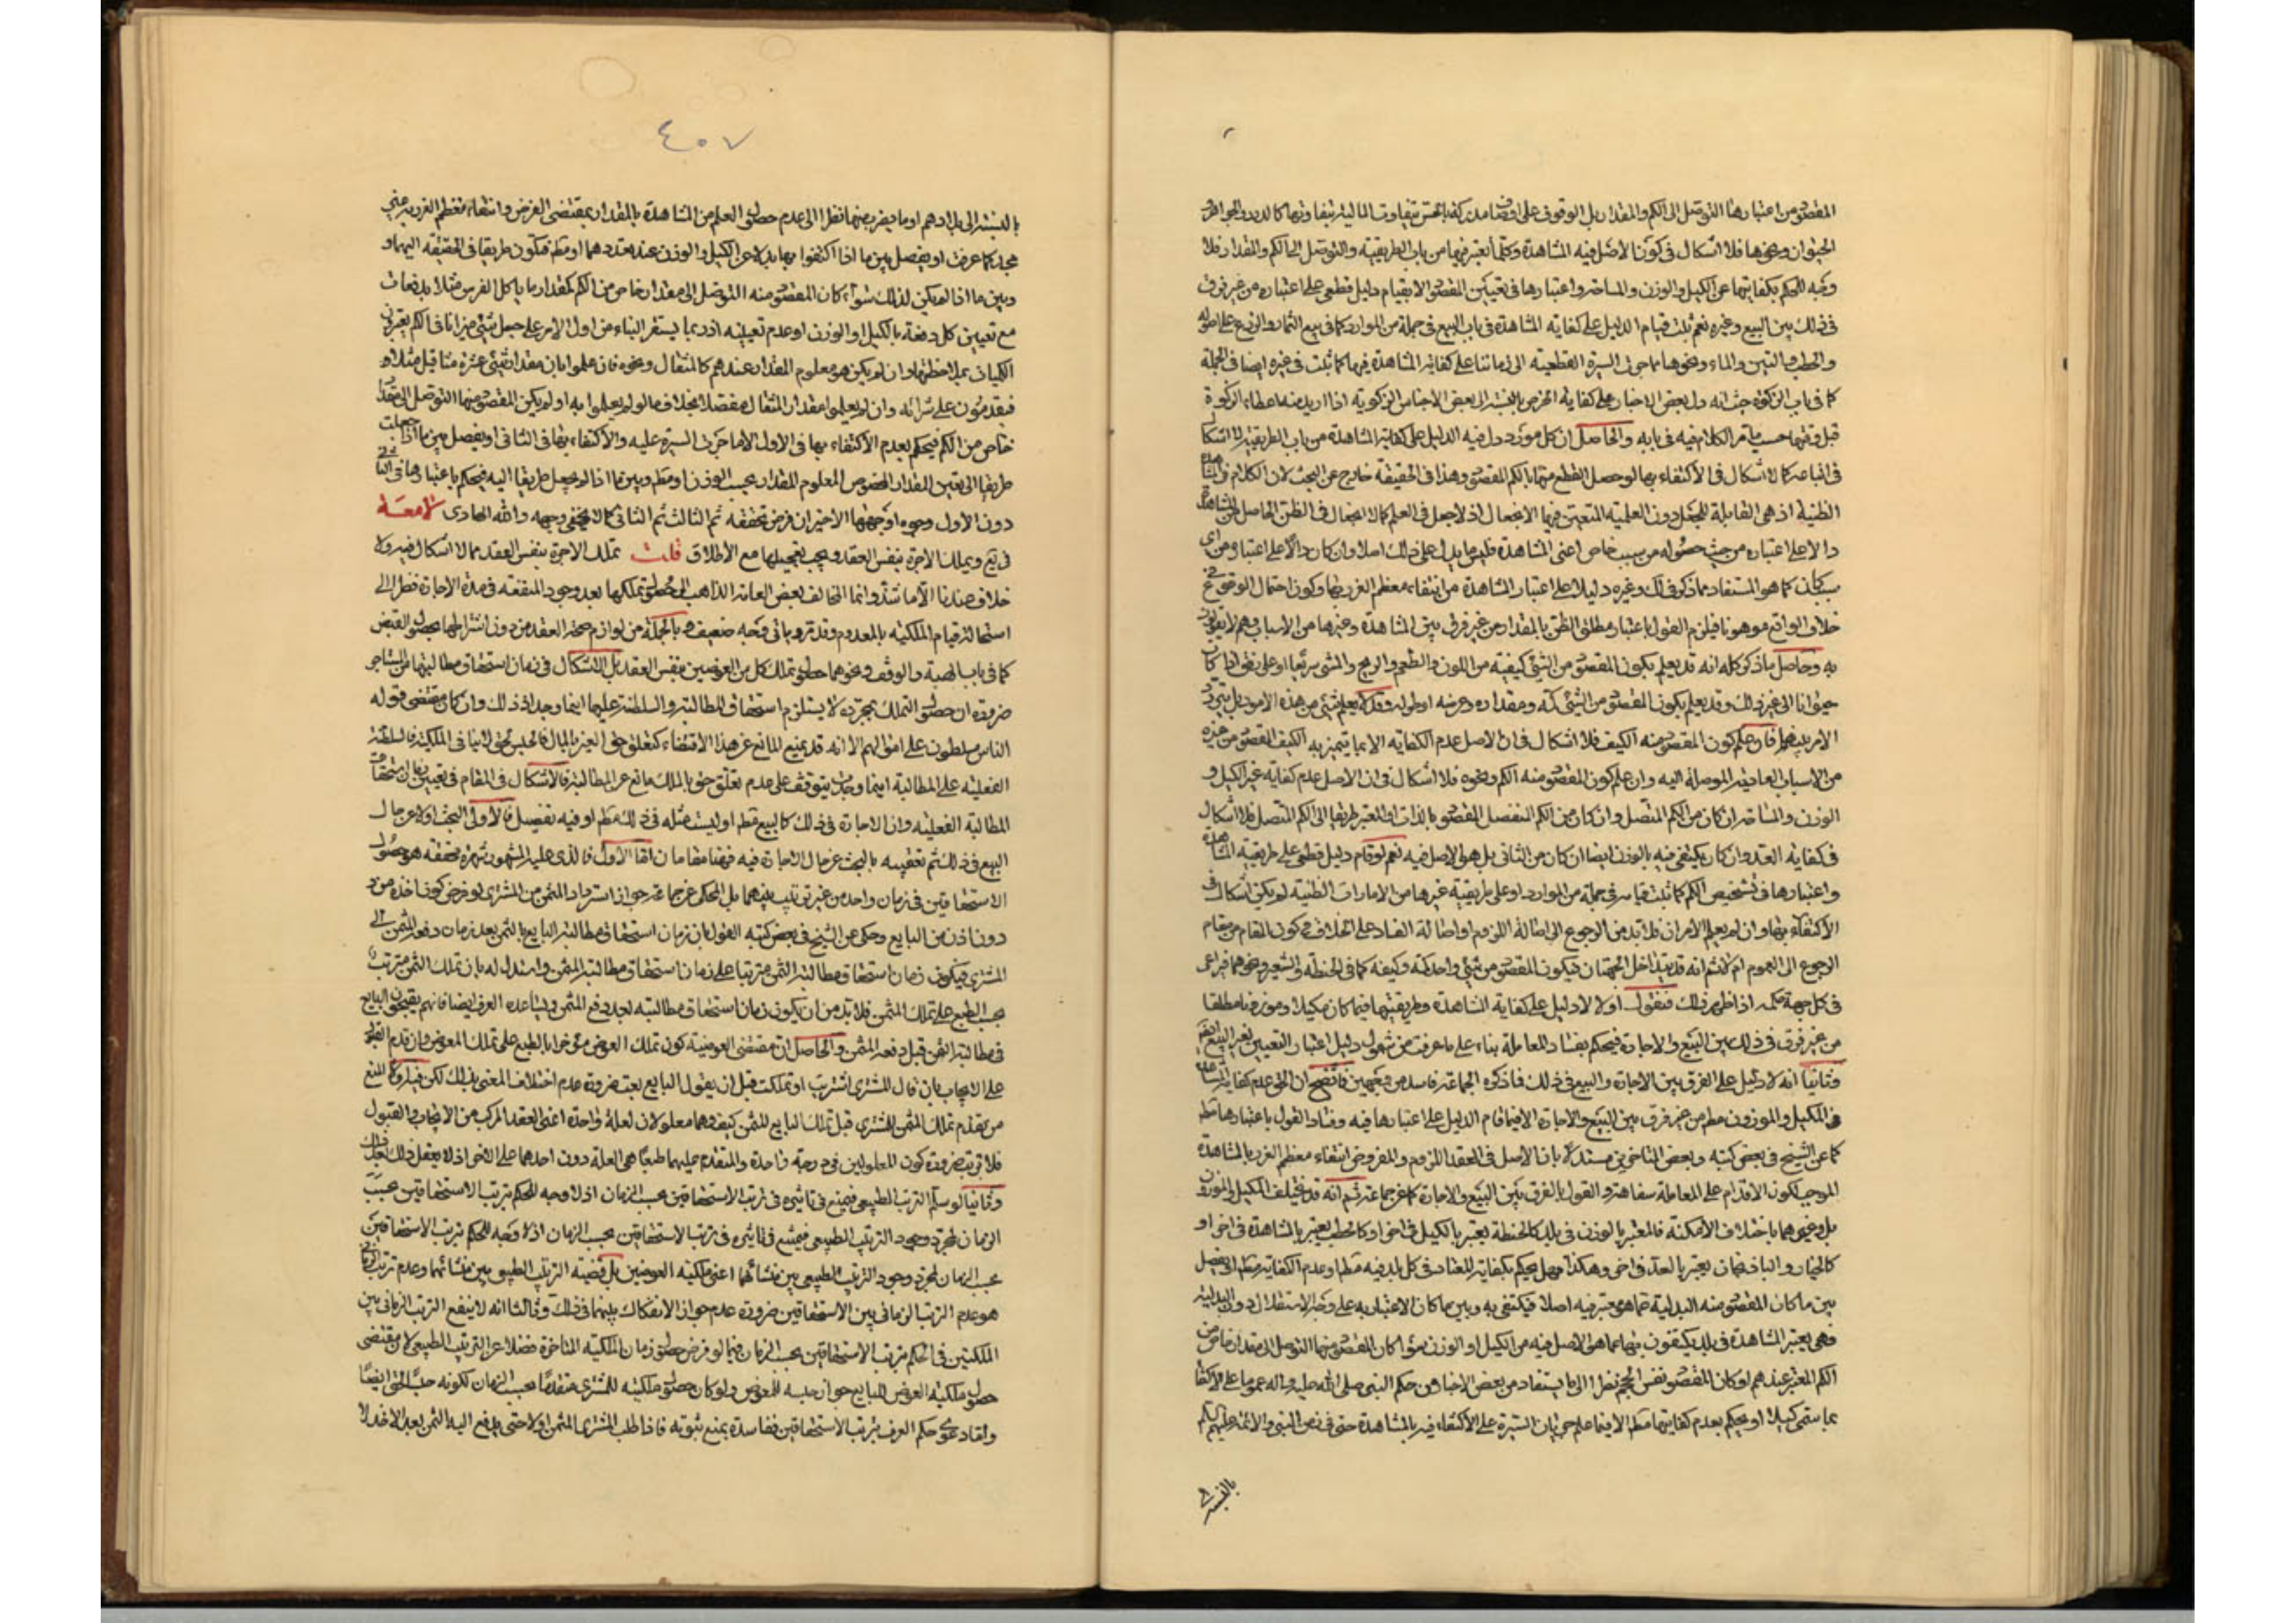 المقصود من اعتبارها التوصل الى الكم والمقدار بل الوقوف على اوصاف تتفاوت المالية بتفاوتها كالدرر والجواهر و
الحيوان ونحوها فلا اشكال في كون الاصل فيه المشاهدة وكلما تعتبر فيها من باب الطريقية والتوصل الى الكم والمقدار فلا
وجه للحكم بكفايتها عن الكيل والوزن والمساحة واعتبارها في تعيين المقصود الا بقيام دليل قطعي على اعتباره من غير فرق
في ذلك بين البيع وغيره نعم ثبت قيام الدليل على كفاية المشاهدة في باب البيع في جملة من الموارد كما في بيع الثمار والزرع على اصوله
والحطب والتبن والماء ونحوها مما جرت السيرة القطعية الى زماننا على كفاية المشاهدة فيها كما ثبت في غيره ايضا في الجملة
كما في باب الزكوة حيث انه دل بعض الاخبار على كفاية الخرص بالنسبة الى بعض الاجناس الزكوية اذا اريد منه اعطاء الزكوة
قبل وقتها حسب ما مر الكلام فيه في بابه والحاصل ان كل مورد دل فيه الدليل على كفاية المشاهدة من باب الطريقية لا اشكال
في اتباعه كما لا اشكال في الاكتفاء بها لو حصل القطع منها بالكم المقصود وهذا في الحقيقة خارج عن البحث لان الكلام في المشاهدة
الظنية اذ هي القابلة للجعل دون العلمية المتعين فيها الانجعال اذ لا جعل في العلم كما لا انجعال في الظن الحاصل من المشاهدة
دالا على اعتباره من حيث حصوله من سبب خاص اعني المشاهدة فليس ما يدل على ذلك اصلا وان كان دالا على اعتباره من اي
سبب كان كما هو المستفاد مما ذكر في ذلك وغيره دليلا على اعتبار المشاهدة من انتفاء معظم الغرر بها وكون احتمال الوقوع في
خلاف الواقع موهونا فيلزم القول باعتبار مطلق الظن بالمقدار من غير فرق بين المشاهدة وغيرها من الاسباب وهم لا يقولون
به وحاصل ما ذكر كله انه قد يعلم بكون المقصود من الشيء كيفيته من اللون والطعم والريح والمشي سريعا او على نحو اذا كان
حيوانا الى غير ذلك وقد يعلم بكون المقصود من الشيء كمه ومقداره وعرضه او طوله وقد لا يعلم شيء من هذه الامور بل يتردد
الامر بينها فان علم كون المقصود منه الكيف فلا اشكال في ان الاصل عدم الكفاية الا بما يتميز به الكيف المقصود من هذه
من الاسباب العادية الموصلة اليه وان علم كون المقصود منه الكم ونحوه فلا اشكال في ان الاصل عدم كفاية غير الكيل و
الوزن والمساحة ان كان من الكم المتصل وان كان من الكم المنفصل المقصود بالذات او المعتبر طريقا الى الكم المتصل فلا اشكال
في كفاية العد وان كان يكتفى فيه بالوزن ايضا ان كان من الثاني بل هو الاصل فيه نعم لو قام دليل قطعي على طريقية المشاهدة
واعتبارها في تشخيص الكم كما ثبت قيامه في جملة من الموارد او على طريقية غيرها من الامارات الظنية لم يكن اشكال في
الاكتفاء بها وان لم يعلم الامران فلا بد من الرجوع الى اصالة اللزوم او اصالة الفساد على الخلاف في كون المقام من مقام
الرجوع الى العموم ام لا ثم انه قد يتداخل الجهتان فيكون المقصود من شيء واحد كمه وكيفه كما في الحنطة والشعير ونحوهما فيراعى
في كل جهة حكمه اذا ظهر ذلك فنقول اولا لا دليل على كفاية المشاهدة وطريقيتها فيما كان مكيلا وموزونا مطلقا
من غير فرق في ذلك بين البيع والاجارة فيحكم بفساد المعاملة بناء على ما عرفت من شمول دليل اعتبار التعيين لغير البيع ايضا
وثانيا انه لا دليل على الفرق بين الاجارة والبيع في ذلك فما ذكره الجماعة فاسد من وجهين فاتضح ان الحق عدم كفاية المشاهدة
في المكيل والموزون مطم من غير فرق بين البيع والاجارة الا فيما قام الدليل على اعتبارها فيه وفساد القول باعتبارها مطم
كما عن الشيخ في بعض كتبه وبعض المتاخرين مستدلا بان الاصل في العقد اللزوم والمفروض انتفاء معظم الغرر بالمشاهدة
الموجب لكون الاقدام على المعاملة سفاهة والقول بالفرق بين البيع والاجارة كما عن جماعة ثم انه قد يختلف المكيل والموزون
بل وغيرهما باختلاف الامكنة فالمعتبر بالوزن في بلد كالحنطة يعتبر بالكيل في اخر او كالحطب يعتبر بالمشاهدة في اخر او
كالخيار والباذنجان يعتبر بالعد في اخر وهكذا فهل يحكم بكفاية المعتاد في كل بلد فيه مطم او عدم الكفاية مطم او يفصل
بين ما كان المقصود منه البدلية عما هو معتبر فيه اصلا فيكتفى به وبين ما كان الاعتبار به على وجه الاستقلال دون البدلية
فهي يعتبر المشاهدة في بلد يكتفون بها عما هو الاصل فيه من الكيل او الوزن سواء كان المقصود منها التوصل الى مقدار خاص من
الكم المعتبر عندهم او كان المقصود نفس الحجم نظرا الى ما يستفاد من بعض الاخبار من حكم النبي صلى الله عليه واله عموما على الاكتفاء
بما سمي كيلا او يحكم بعدم كفايتها مطم الا فيما علم جريان السيرة على الاكتفاء فيه بالمشاهدة حتى في زمن النبي والائمة عليهم السلم
بالنسبة
٤٥٧
بالنسبة الى بلادهم او ما يقرب منها نظرا الى عدم حصول العلم من المشاهدة بالمقدار بمقتضى الفرض وانتفاء معظم الغرر غير
مجد كما عرفت او يفصل بين ما اذا اكتفوا بها بدلا عن الكيل والوزن عند تعذرهما او مطم فتكون طريقا في الحقيقة اليهما و
وبين ما اذا لم يكن لذلك سواء كان المقصود منه التوصل الى مقدار خاص من الكم كمقدار ما ياكل الفرس مثلا بدفعات
مع تعيين كل دفعة بالكيل او الوزن او عدم تعيينه اذ ربما يستقر البناء من اول الامر على جعل شيء ميزانا في الكم يعتبرون
الكيل بملاحظتها وان لم يكن هو معلوم المقدار عندهم كالمثقال ونحوه فان علموا بان مقدار شيء عشرة مثاقيل مثلا و
فيقدمون على شرائه وان لم يعلموا مقدار المثقال مفصلا بخلاف ما لو لم يعلموا به او لم يكن المقصود منها التوصل الى مقدار
خاص من الكم فيحكم بعدم الاكتفاء بها في الاول الا ما جرت السيرة عليه والاكتفاء بها في الثاني او يفصل بين ما اذا جعلت
طريقا الى تعيين المقدار المخصوص المعلوم المقدار بحسب الوزن او مطم وبين ما اذا لم يجعل طريقا اليه فيحكم باعتبارها في الثاني
دون الاول وجوه اوجهها الاخير ان فرض تحققه ثم الثالث ثم الثاني كما لا يخفى وجهه والله الهادي لامعة
في يع ويملك الاجرة بنفس العقد ويجب تعجيلها مع الاطلاق قلت تملك الاجرة بنفس العقد مما لا اشكال فيه ولا
خلاف عندنا الا ما شذ وانما المخالف بعض العامة الذاهب الى حصول تملكها بعد وجود المنفعة في مدة الاجارة نظرا الى
استحالة قيام الملكية بالمعدوم وقد مر وياتي وجه ضعيفه وبالجملة من لوازم صحة العقد من دون اشتراطها بحصول القبض
كما في باب الهبة والوقف ونحوهما حصول تملك كل من العوضين بنفس العقد بل الاشكال في زمان استحقاق مطالبتها من المستاجر
ضرورة ان حصول التملك بمجرده لا يستلزم استحقاق المطالبة والسلطنة عليها اينما وجد اذ ذلك وان كان مقتضى قوله
الناس مسلطون على اموالهم الا انه قد يمنع المانع عن هذا الاقتضاء كتعلق حق الغير بالمال فالحبس بحق لا ينافي الملكية فالسلطنة
الفعلية على المطالبة اينما وجدت يتوقف على عدم تعلق حق بالملك مانع عن المطالبة فالاشكال في المقام في تعيين زمان استحقاق
المطالبة الفعلية وان الاجارة في ذلك كالبيع قطم او ليست مثله في ذلك مطم او فيه تفصيل فالاولى البحث اولا عن حال
البيع في ذلك ثم تعقيبه بالبحث عن حال الاجارة فيه فهنا مقامان اما الاول فالذي عليه المشهور شهرة محققة هو حصول
الاستحقاقين في زمان واحد من غير ترتيب بينهما بل المحكي عن جماعة جواز استرداد المثمن من المشتري لو فرض كونه اخذه من
دون اذن من البايع وحكي عن الشيخ في بعض كتبه القول بان زمان استحقاق مطالبة البايع بالثمن بعد زمان دفعه المثمن الى
المشتري فيكون زمان استحقاق مطالبة الثمن مترتبا على زمان استحقاق مطالبة المثمن واستدل له بان تملك الثمن مترتب
بحسب الطبع على تملك المثمن فلا بد من ان يكون زمان استحقاق مطالبته بعد دفع المثمن ويساعده العرف ايضا فانهم يقبحون البايع
في مطالبة الثمن قبل دفعه المثمن والحاصل ان مقتضى العوضية كون تملك العوض مؤخرا بالطبع على تملك المعوض وان قدم القبول
على الايجاب بان قال المشتري اشتريت او تملكت قبل ان يقول البايع بعت ضرورة عدم اختلاف المعنى بذلك لكن فيه اولا المنع
من تقدم تملك المثمن للمشتري قبل تملك البايع للثمن كيف وهما معلولان لعلة واحدة اعني العقد المركب من الايجاب والقبول
فلا ترتب ضرورة كون المعلولين في درجة واحدة والمتقدم عليهما طبعا هي العلة دون احدهما على الاخر اذ لا يعقل ذلك
وثانيا لو سلم الترتب الطبيعي فيمنع في تاثيره في ترتب الاستحقاقين بحسب الزمان اذ لا وجه للحكم بترتب الاستحقاقين بحسب
الزمان لمجرد وجود الترتب الطبيعي فيمتنع في تاثيره في ترتب الاستحقاقين بحسب الزمان اذ لا وجه للحكم بترتب الاستحقاقين
بحسب الزمان لمجرد وجود الترتب الطبيعي بين منشائهما اعني ملكية العوضين بل قضية الترتب الطبيعي بين منشائهما وعدم ترتب الزماني
هو عدم الترتب الزماني بين الاستحقاقين ضرورة عدم جواز الانفكاك بينهما في ذلك وثالثا انه لا ينفع الترتب الزماني بين
الملكيتين في الحكم بترتب الاستحقاقين بحسب الزمان فيما لو فرض حصول زمان الملكية المتاخرة فضلا عن الترتب الطبيعي لان مقتضى
حصول ملكية العوض للبايع جواز حبسه للمعوض ولو كان حصول ملكيته للمشتري متقدما بحسب الزمان لكونه حبسا بحق ايضا
واما دعوى حكم العرف بترتب الاستحقاقين ففاسدة بمنع ثبوته فاذا طلب المشتري المثمن اولا حتى يدفع اليه الثمن بعد الاخذ لا